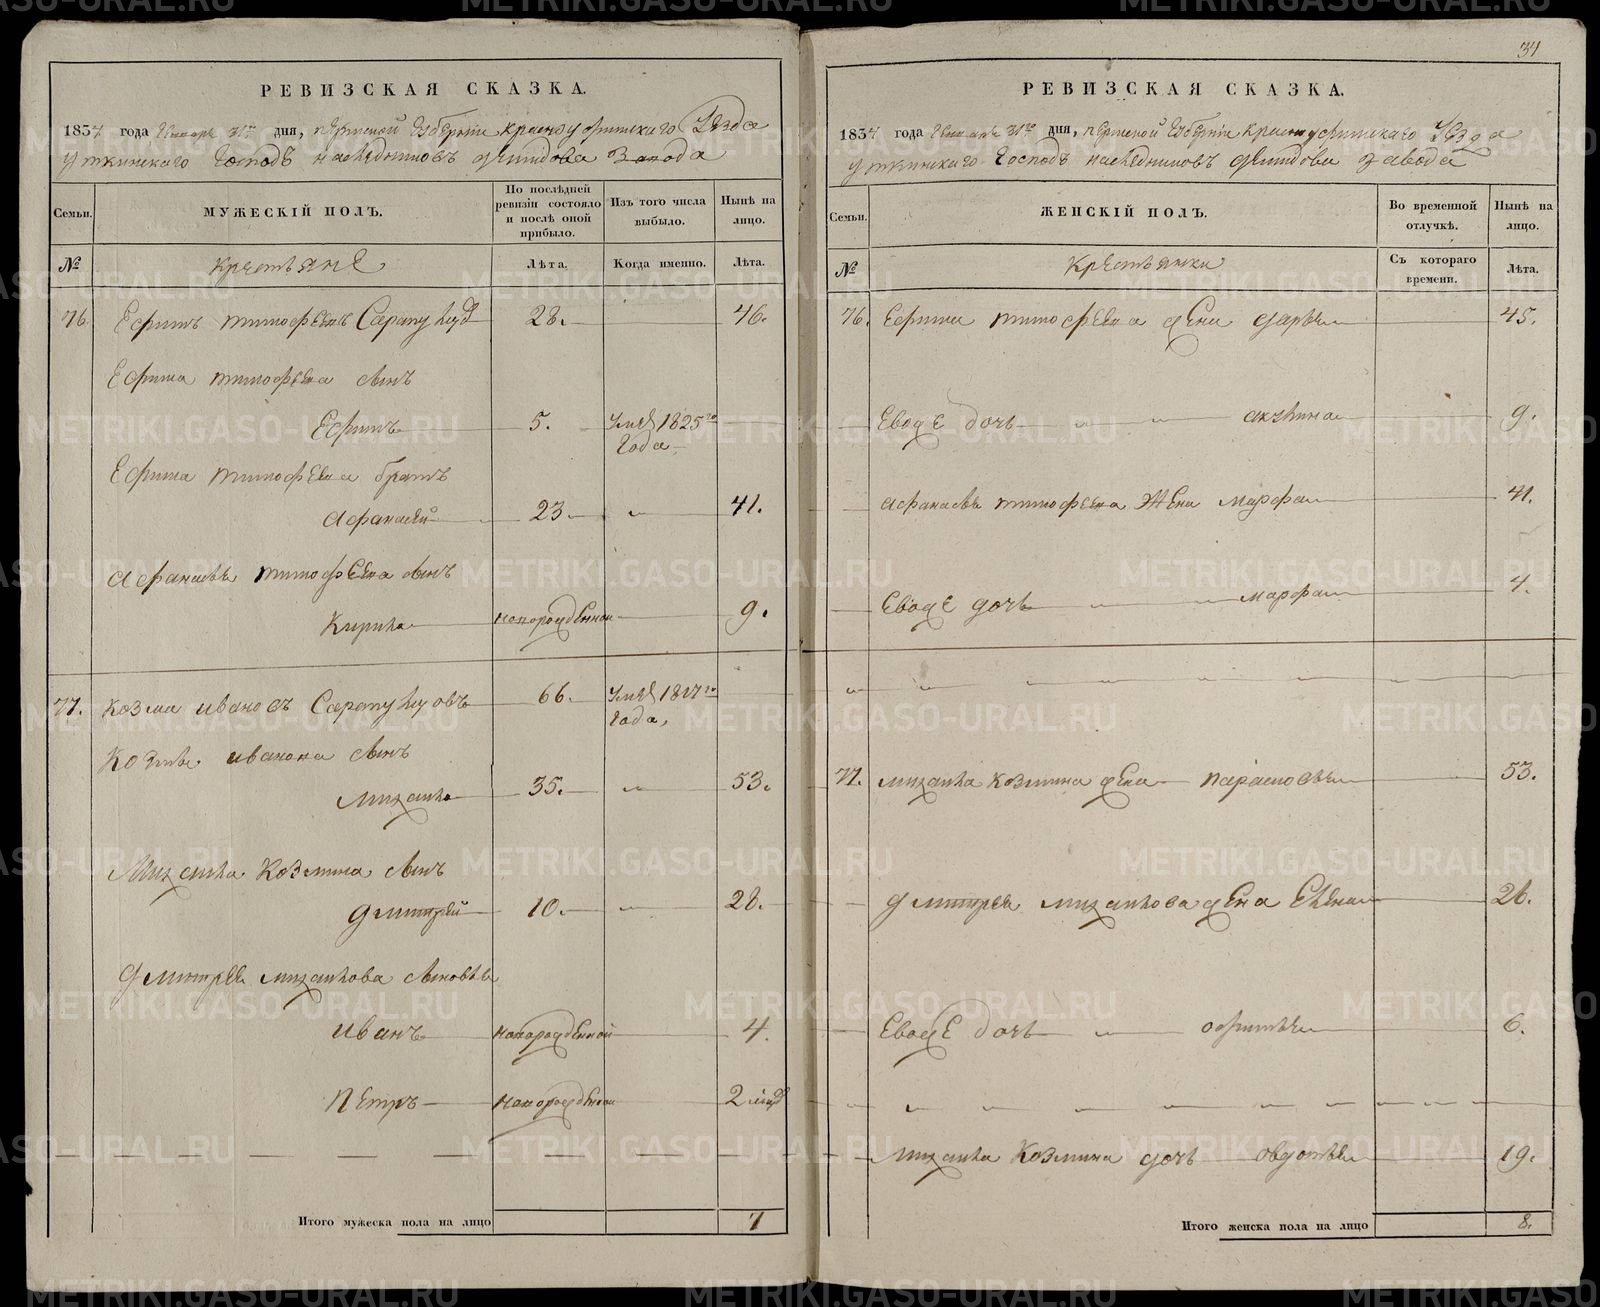 РЕВИЗСКАЯ СКАЗКА.
1834 года Генваря 31го дня, Пермской Губернии Красноуфимского Уезда
Уткинского Господъ наследниковъ Демидова Завода
Семьи. МУЖЕСКІЙ ПОЛЪ. По послѣдней ревизіи состояло и послѣ оной прибыло. Изъ того числа выбыло. Нынѣ на лицо.
№ Крестьяне Лѣта. Когда именно. Лѣта.
76. Ефимъ Тимофеевъ Сарапульцовъ 28. 46.
Ефима Тимофеева сынъ
Ефимъ 5. Умре 1825го
года
Ефима Тимофеева братъ
Афанасей 23 41.
Афанасья Тимофеева сынъ
Кирила новорожденной 9.
77. Козма Ивановъ Сарапульцовъ 66. Умре 1817го
года,
Козмы Иванова сынъ
Михаила 35. 53.
Михаила Козмина сынъ
Дмитрей 10. 28.
Дмитрея Михайлова сыновья
Иванъ новорожденной 4.
Петръ новорожденной 2 мѣсяц
Итого мужеска пола на лицо 7
34
РЕВИЗСКАЯ СКАЗКА.
1834 года Генваря 31го дня, Пермской Губернии Красноуфимского Уезда
Уткинского Господъ наследниковъ Демидова Завода
Семьи. ЖЕНСКІЙ ПОЛЪ. Во временной отлучкѣ. Нынѣ на лицо.
№ Крестьянки Съ котораго времени. Лѣта.
76. Ефима Тимофеева жена Дарья 45.
Евоже дочь Акулина 9.
Афанасья Тимофеева жена Марфа 41.
Евоже дочь Марфа 4.
77. Михаила Козмина жена Парасковья 53.
Дмитрея Михайлова жена Елена 26.
Евоже дочь Офимья 6.
Михаила Козмина дочь Овдотья 19.
Итого женска пола на лицо 8.
METRIKI.GASO-URAL.RU